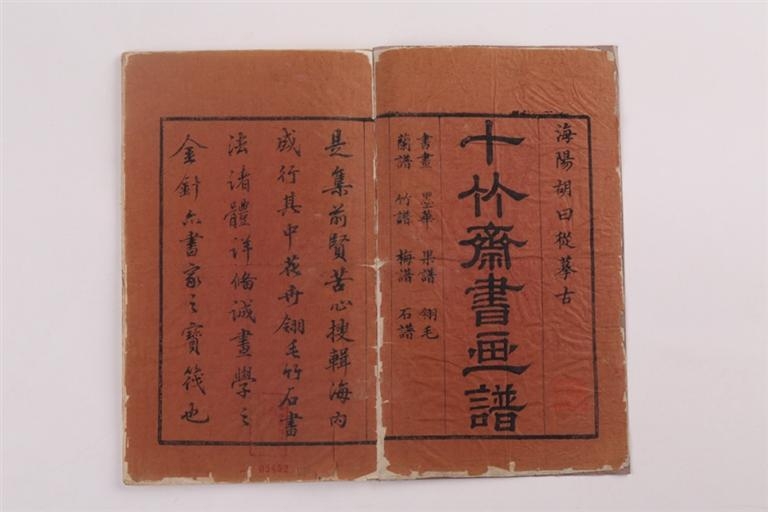 海陽胡曰從摹古
十竹齋書画譜
書畫 墨華 果譜 翎毛
蘭譜 竹譜 梅譜 石譜
是集前賢苦心搜輯海内
成行其中花卉翎毛竹石書
法諸體詳俻誠畫學之
金針亦書家之寶筏也